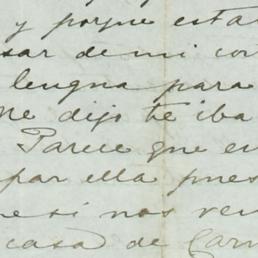 y porque esta
sar de mi con
lengua para
me dijo te iba
Parece que en
par ella pues
si nos ven
casa de Carm